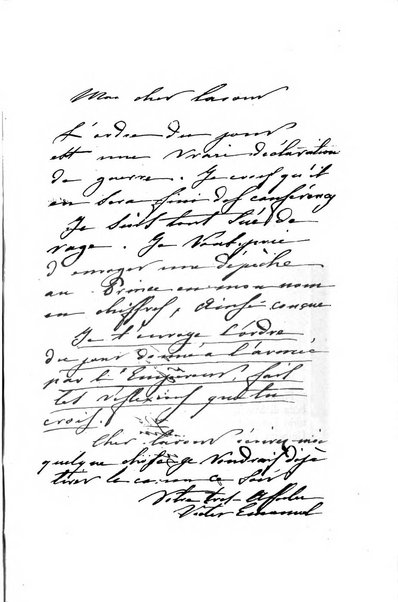 Mon cher Cavour
L'ordre du jour
est une vraie déclaration
de guerre. Je crois qu'il
en sera fini des conférences
Je suis tout sué de
rage. Je vous prie
d'envoyer une dépêche
au Prince en mon nom
en chiffres, ainsi conçue
Je t'envoye l'ordre
du jour donné à l'armée
par l'Empereur, fait
les réflexions que tu
crois.
Cher Cavour écrivez moi
quelque chose je voudrais déjà
tirer le canon ce soir
Votre très affectné
Victor Emanuel